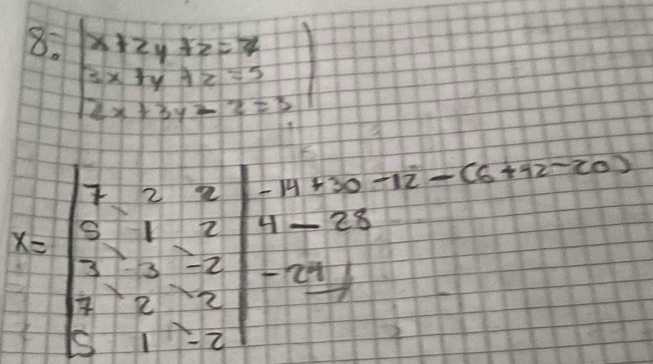 8. x+2y+z=7
3x+y+z=5
2x+3y-z=3
7 2 2 -14+30-12-(6+42-20)
x= 5 1 2 4-28
3 3 -2 -24
7 2 2
5 1 -2